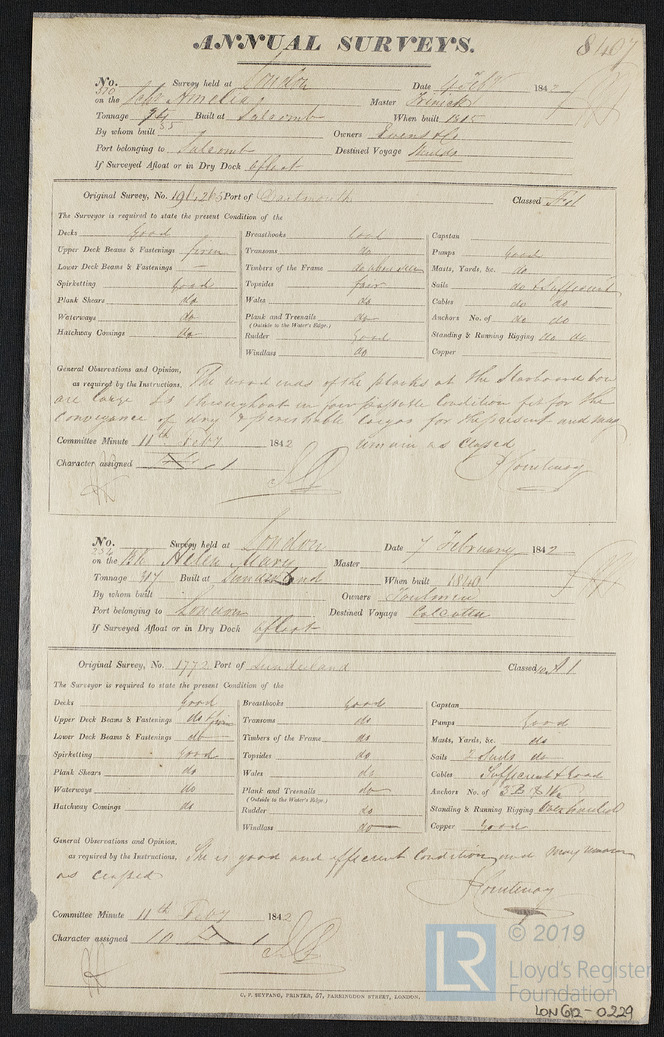 ANNUAL SURVEYS.
8407
No. 310 Survey held at London Date 4 Feby 1842
on the Schr Amelia Master
Tonnage 94 Built at Salcomb When built 1815
55
By whom built Owners Evens & Co
Port belonging to Salcomb Destined Voyage Shields
If Surveyed Afloat or in Dry Dock Afloat
Original Survey, No. Port of Dartmouth Classed
The Surveyor is required to state the present Condition of the
Decks Good Breasthooks Good Capstan
Upper Deck Beams & Fastenings firm Transoms do Pumps Good
Lower Deck Beams & Fastenings — Timbers of the Frame do where seen Masts, Yards, &c. do
Spirketting Good Topsides fair Sails do & Sufficient
Plank Shears do Wales do Cables do do
Waterways do Plank and Treenails do Anchors No. of do do
(Outside to the Water's Edge.)
Hatchway Comings do Rudder Good Standing & Running Rigging do do
Windlass do Copper
General Observations and Opinion,
as required by the Instructions, The wood ends of the planks at the Starboard bow
are large is throughout in condition fit for the
Conveyance of dry & perishable Cargos for the present and may
remain as Classed
Committee Minute 11th Feby 1842
Character assigned 1
Courtenay
No. 254 Survey held at London Date 7 February 1842
on the Bk Helen Mary Master
Tonnage 317 Built at Sunderland When built 1840
By whom built Owners Toulmin
Port belonging to London Destined Voyage Calcutta
If Surveyed Afloat or in Dry Dock Afloat
Original Survey, No. 1772 Port of Sunderland Classed 10 A 1
The Surveyor is required to state the present Condition of the
Decks Good Breasthooks Good Capstan
Upper Deck Beams & Fastenings do firm Transoms do Pumps Good
Lower Deck Beams & Fastenings do Timbers of the Frame do Masts, Yards, &c. do
Spirketting Good Topsides do Sails 2 Suits do
Plank Shears do Wales do Cables Sufficient & Good
Waterways do Plank and Treenails do Anchors No. of 3 B &
(Outside to the Water's Edge.)
Hatchway Comings do Rudder do Standing & Running Rigging Overhauled
Windlass do Copper Good
General Observations and Opinion,
as required by the Instructions, She is good and efficient Condition and may remain
as classed
Courtenay
Committee Minute 11th Feby 1842
Character assigned 10 A 1
C. F. SEYFANG, PRINTER, 57, FARRINGDON STREET, LONDON.
© 2019
LR
Lloyd's Register
Foundation
LON612-0229